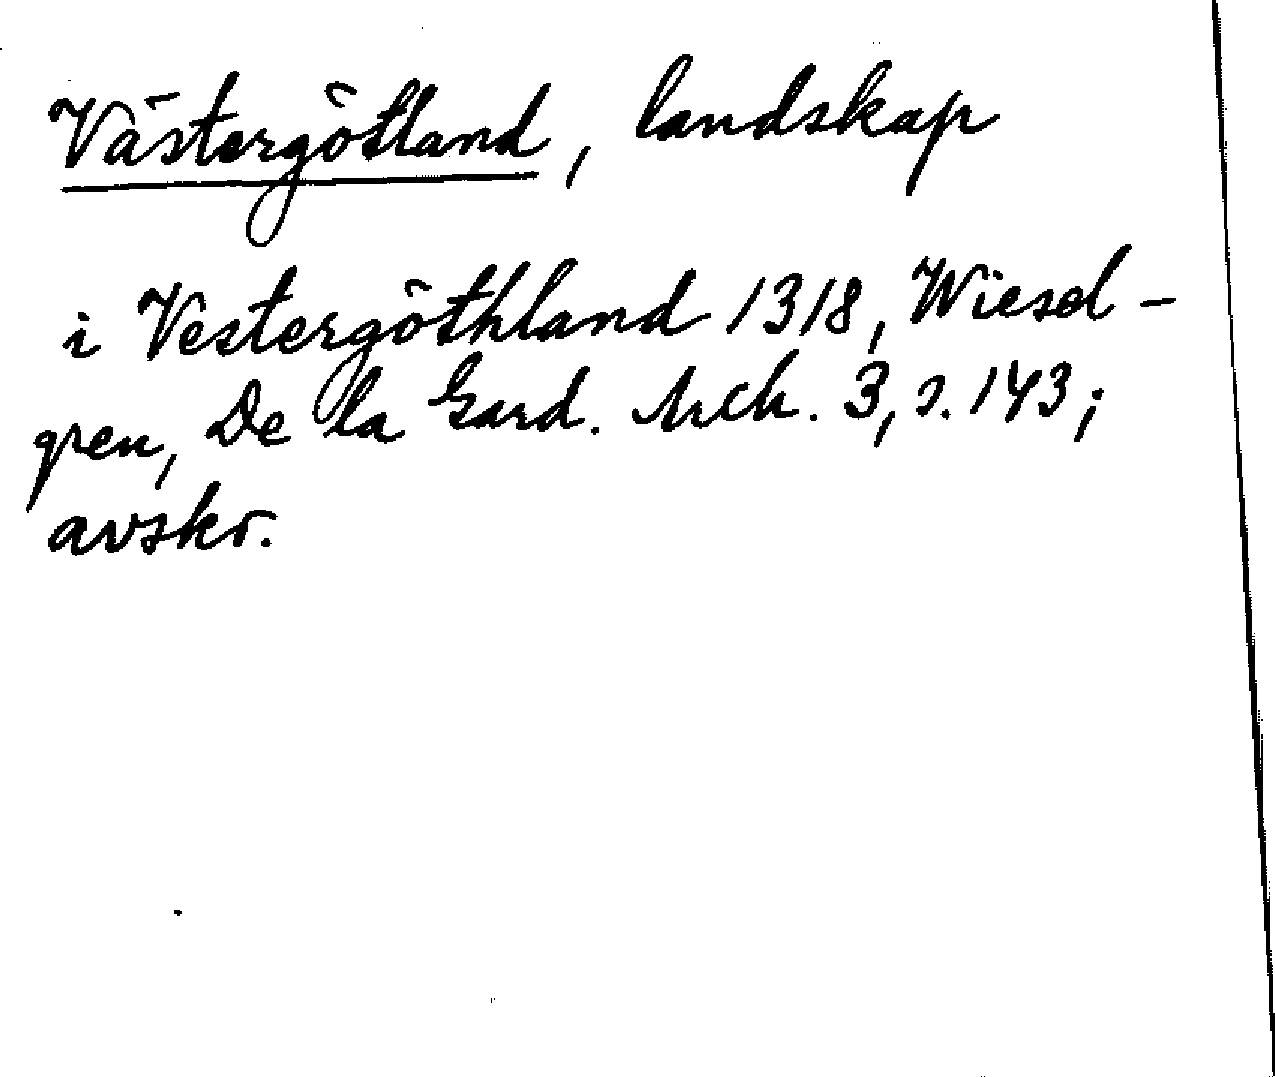 Västergötland, landskap
i Vestergöthland 1318, Wiesel-
gren, De la Gard. Arch. 3, s. 143;
avskr.